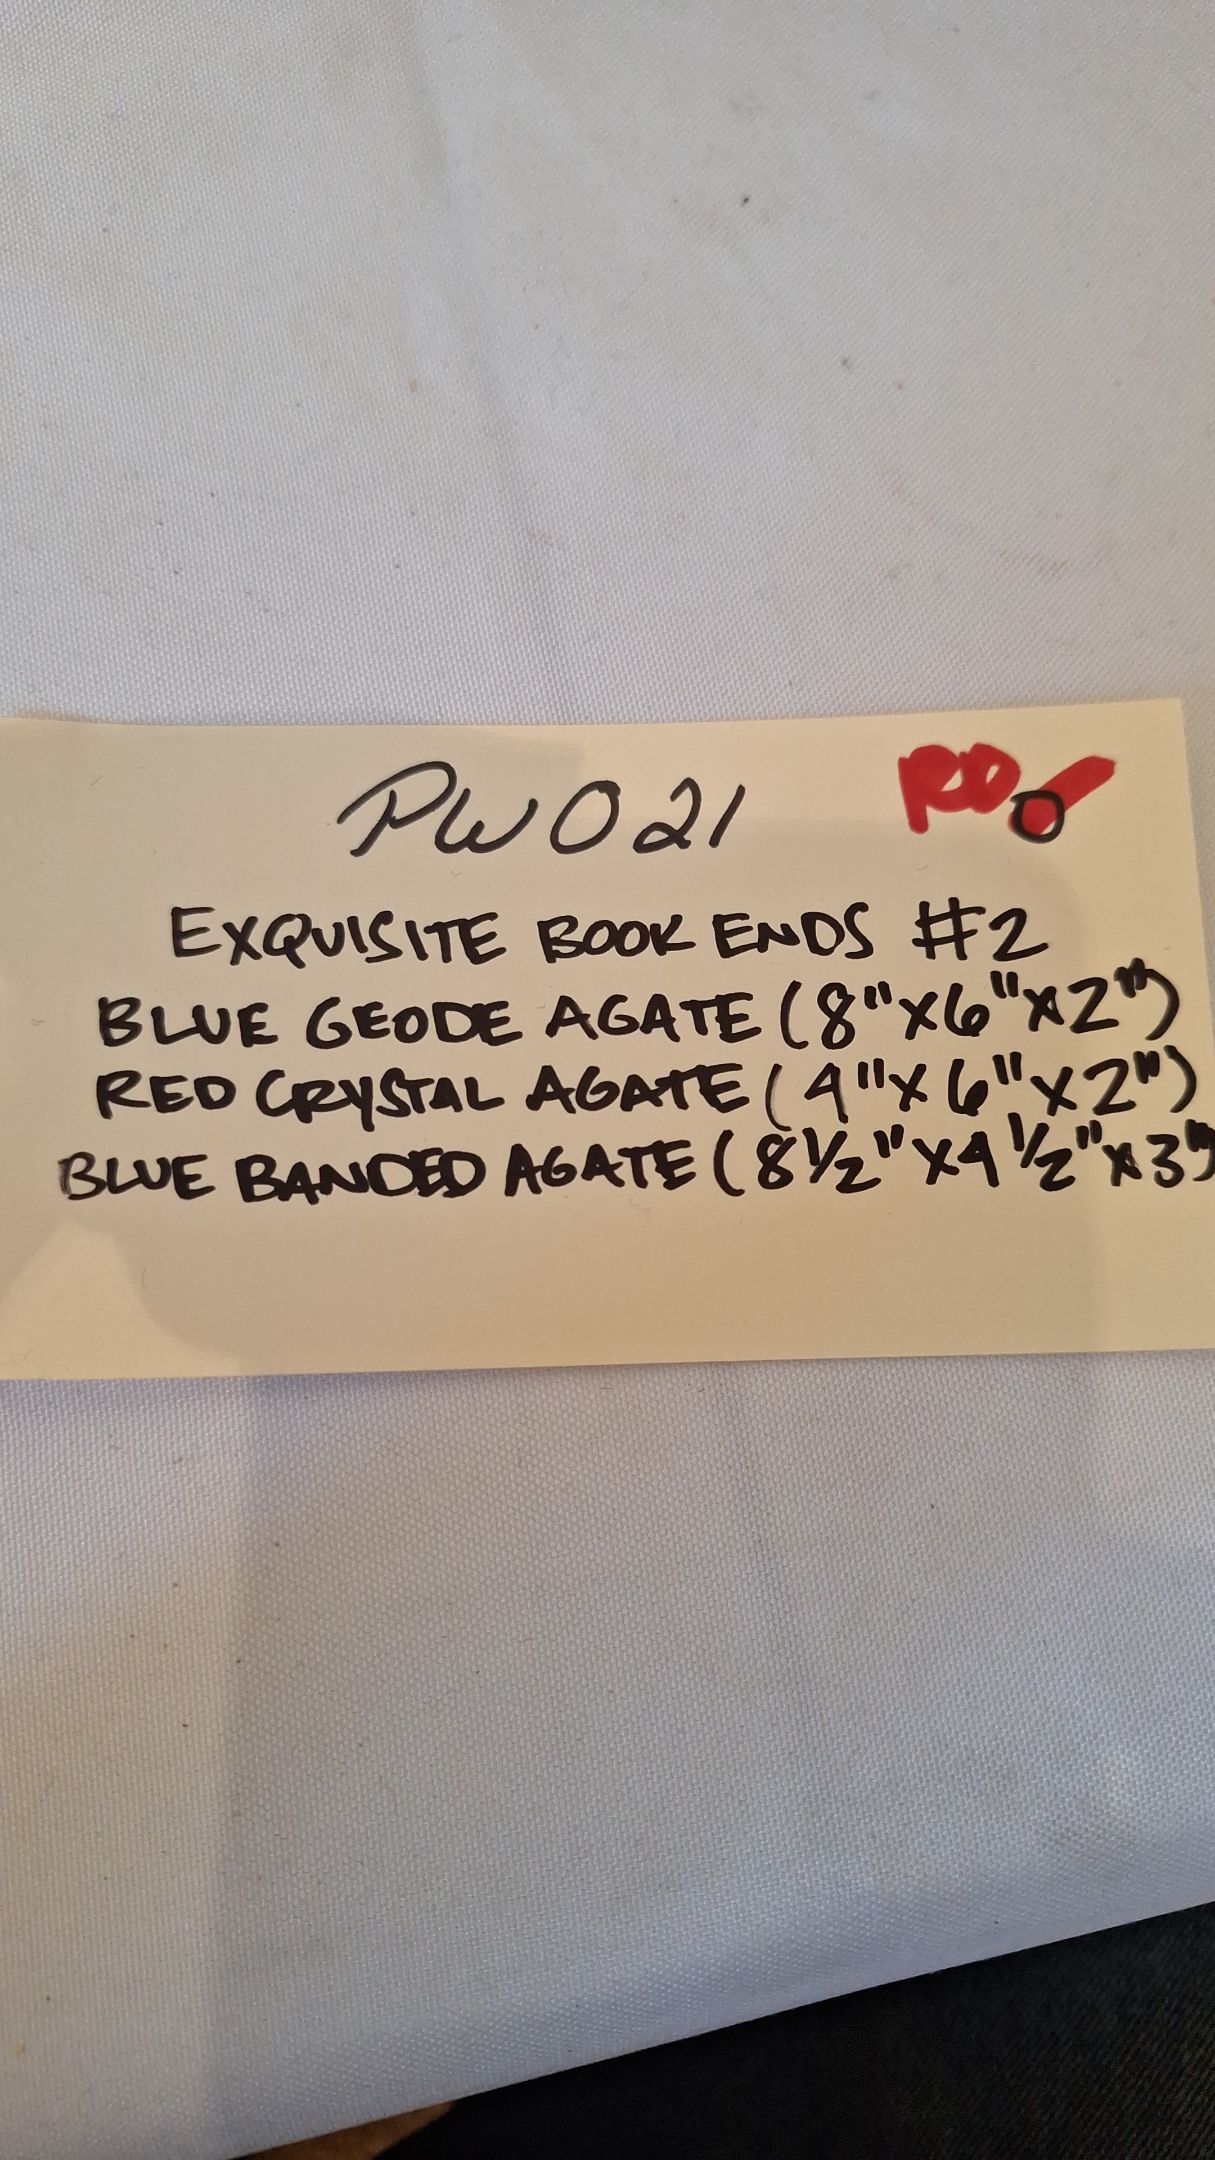 PW021 RD
EXQUISITE BOOK ENDS #2
BLUE GEODE AGATE (8"x6"x2")
RED CRYSTAL AGATE (4"x6"x2")
BLUE BANDED AGATE (8½"x4½"x3"